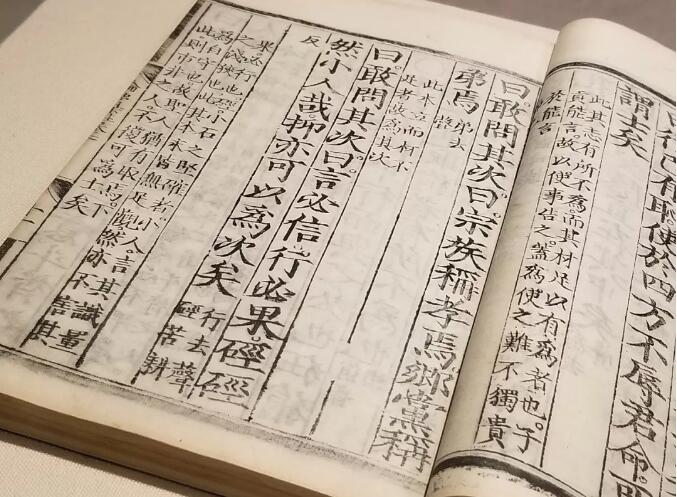 行己有恥使於四方不辱君命可
謂士矣
此其志有所不為而其材足以有為者也。子
貢能言故以使事告之。蓋為使之難不獨貴
於能言
曰。敢問其次曰。宗族稱孝焉。鄉黨稱
弟焉
弟去
聲
此本立而材不
足者故為其次
曰。敢問其次曰。言必信。行必果。硜硜
然小人哉。抑亦可以為次矣
行去聲
硜苦耕
反
果必行也。硜小石之堅確者小人言其識量
之淺狹也。此其本末皆無足觀。然亦不害其
為自守也。故聖人猶有取焉。下
此則市井之人。不復可為士矣